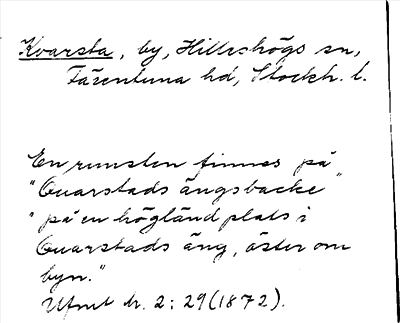 Kvarsta, by, Hilleshögs sn,
Färentuna hd, Stockh. l.
En runsten finnes på
"Quarstads ängsbacke"
"på en högländ plats i
Quarstads äng, öster om
byn."
Ufmt h. 2: 29 (1872).